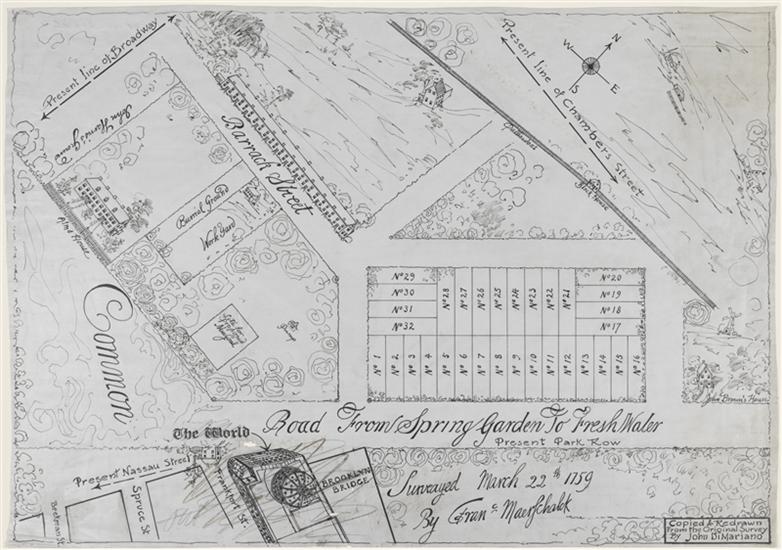 Present line of Broadway
Present line of Chambers Street
W N
S E
Barrack Street
Palisadoes
Block House
Alms House
Burrial Ground
Work Yard
Common
Nº29
Nº30
Nº31
Nº32
Nº28 Nº27 Nº26 Nº25 Nº24 Nº23 Nº22 Nº21
Nº20
Nº19
Nº18
Nº17
Nº1 Nº2 Nº3 Nº4 Nº5 Nº6 Nº7 Nº8 Nº9 Nº10 Nº11 Nº12 Nº13 Nº14 Nº15 Nº16
John Brown's House
Road From Spring Garden To Fresh Water
Present Park Row
The World
Present Nassau Street
Beekman St.
Spruce St
Frankfort St.
BROOKLYN
BRIDGE
Survayed March 22th 1759
By Franc Maerschalck
Copied & Redrawn
From the Original Survey
By John DiMariano